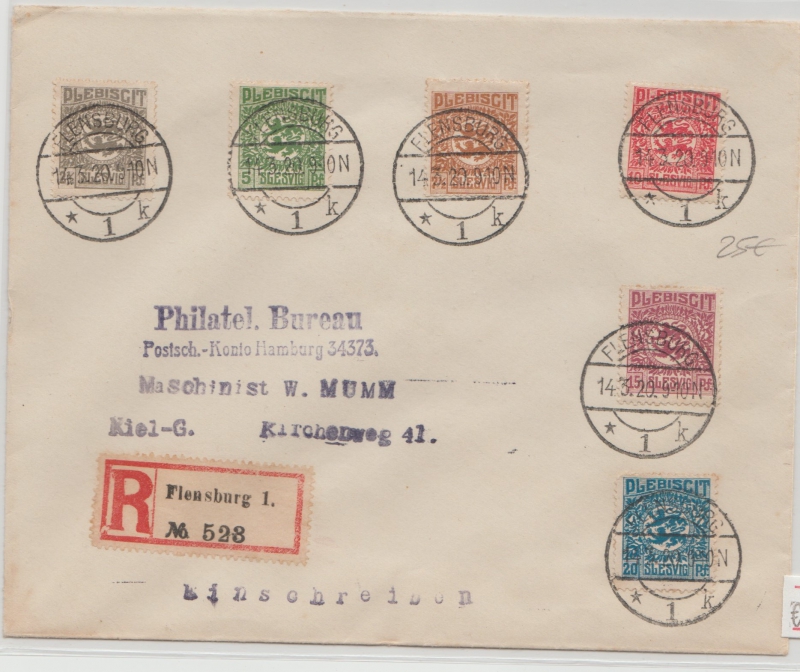 PLEBISCIT
FLENSBURG
14.3.20.9-10N
2½ SLESVIG PF.
* 1 k
PLEBISCIT
FLENSBURG
14.3.20.9-10N
5 SLESVIG PF.
* 1 k
PLEBISCIT
FLENSBURG
14.3.20.9-10N
SLESVIG PF.
* 1 k
PLEBISCIT
FLENSBURG
14.3.20.9-10N
10 SLESVIG PF.
* 1 k
25€
PLEBISCIT
FLENSBURG
14.3.20.9-10N
15 SLESVIG PF.
* 1 k
Philatel. Bureau
Postsch.-Konto Hamburg 34373.
Maschinist W. MUMM
Kiel-G. Kirchenweg 41.
R
Flensburg 1.
№ 523
PLEBISCIT
FLENSBURG
20 SLESVIG PF.
* 1 k
Einschreiben